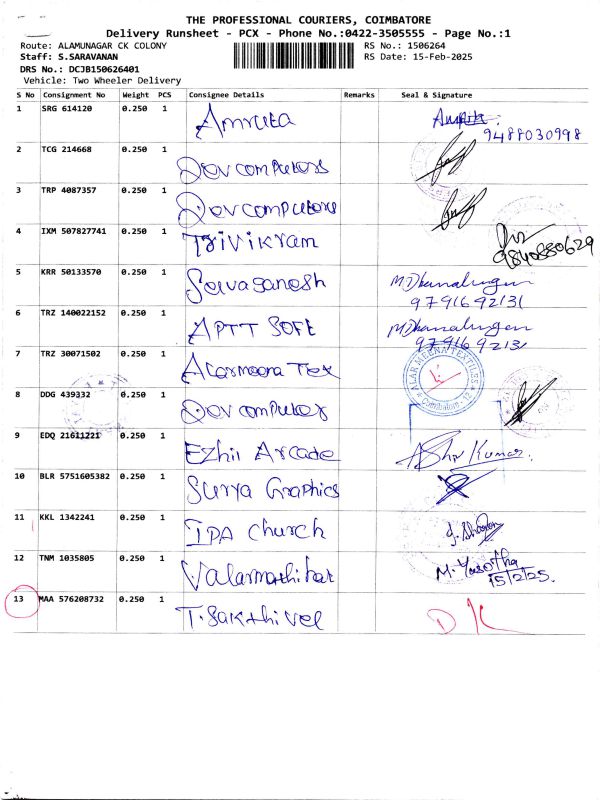 THE PROFESSIONAL COURIERS, COIMBATORE
Delivery Runsheet - PCX - Phone No.:0422-3505555 - Page No.:1
Route: ALAMUNAGAR CK COLONY RS No.: 1506264
Staff: S.SARAVANAN RS Date: 15-Feb-2025
DRS No.: DCJB150626401
Vehicle: Two Wheeler Delivery
S No Consignment No Weight PCS Consignee Details Remarks Seal & Signature
1 SRG 614120 0.250 1 Amruta Amruta
9488030998
2 TCG 214668 0.250 1 Dev computers
3 TRP 4087357 0.250 1 Dev computers
4 IXM 507827741 0.250 1 Trivikram
9840880629
5 KRR 50133570 0.250 1 Selvaganesh M Dhanalingen
9791692131
6 TRZ 140022152 0.250 1 APTT SOFT M Dhanalingen
9791692131
7 TRZ 30071502 0.250 1 Alarmeena Tex ALAR MEENA TEXTILES
Coimbatore - 12
8 DDG 439332 0.250 1 Dev computer
9 EDQ 21611221 0.250 1 Ezhil Arcade Ashv Kumar.
10 BLR 5751605382 0.250 1 Surya Graphics
11 KKL 1342241 0.250 1 IPA church
12 TNM 1035805 0.250 1 Valarmathi M. Yasotha
15/2/25.
13 MAA 576208732 0.250 1 T. Sakthivel DK